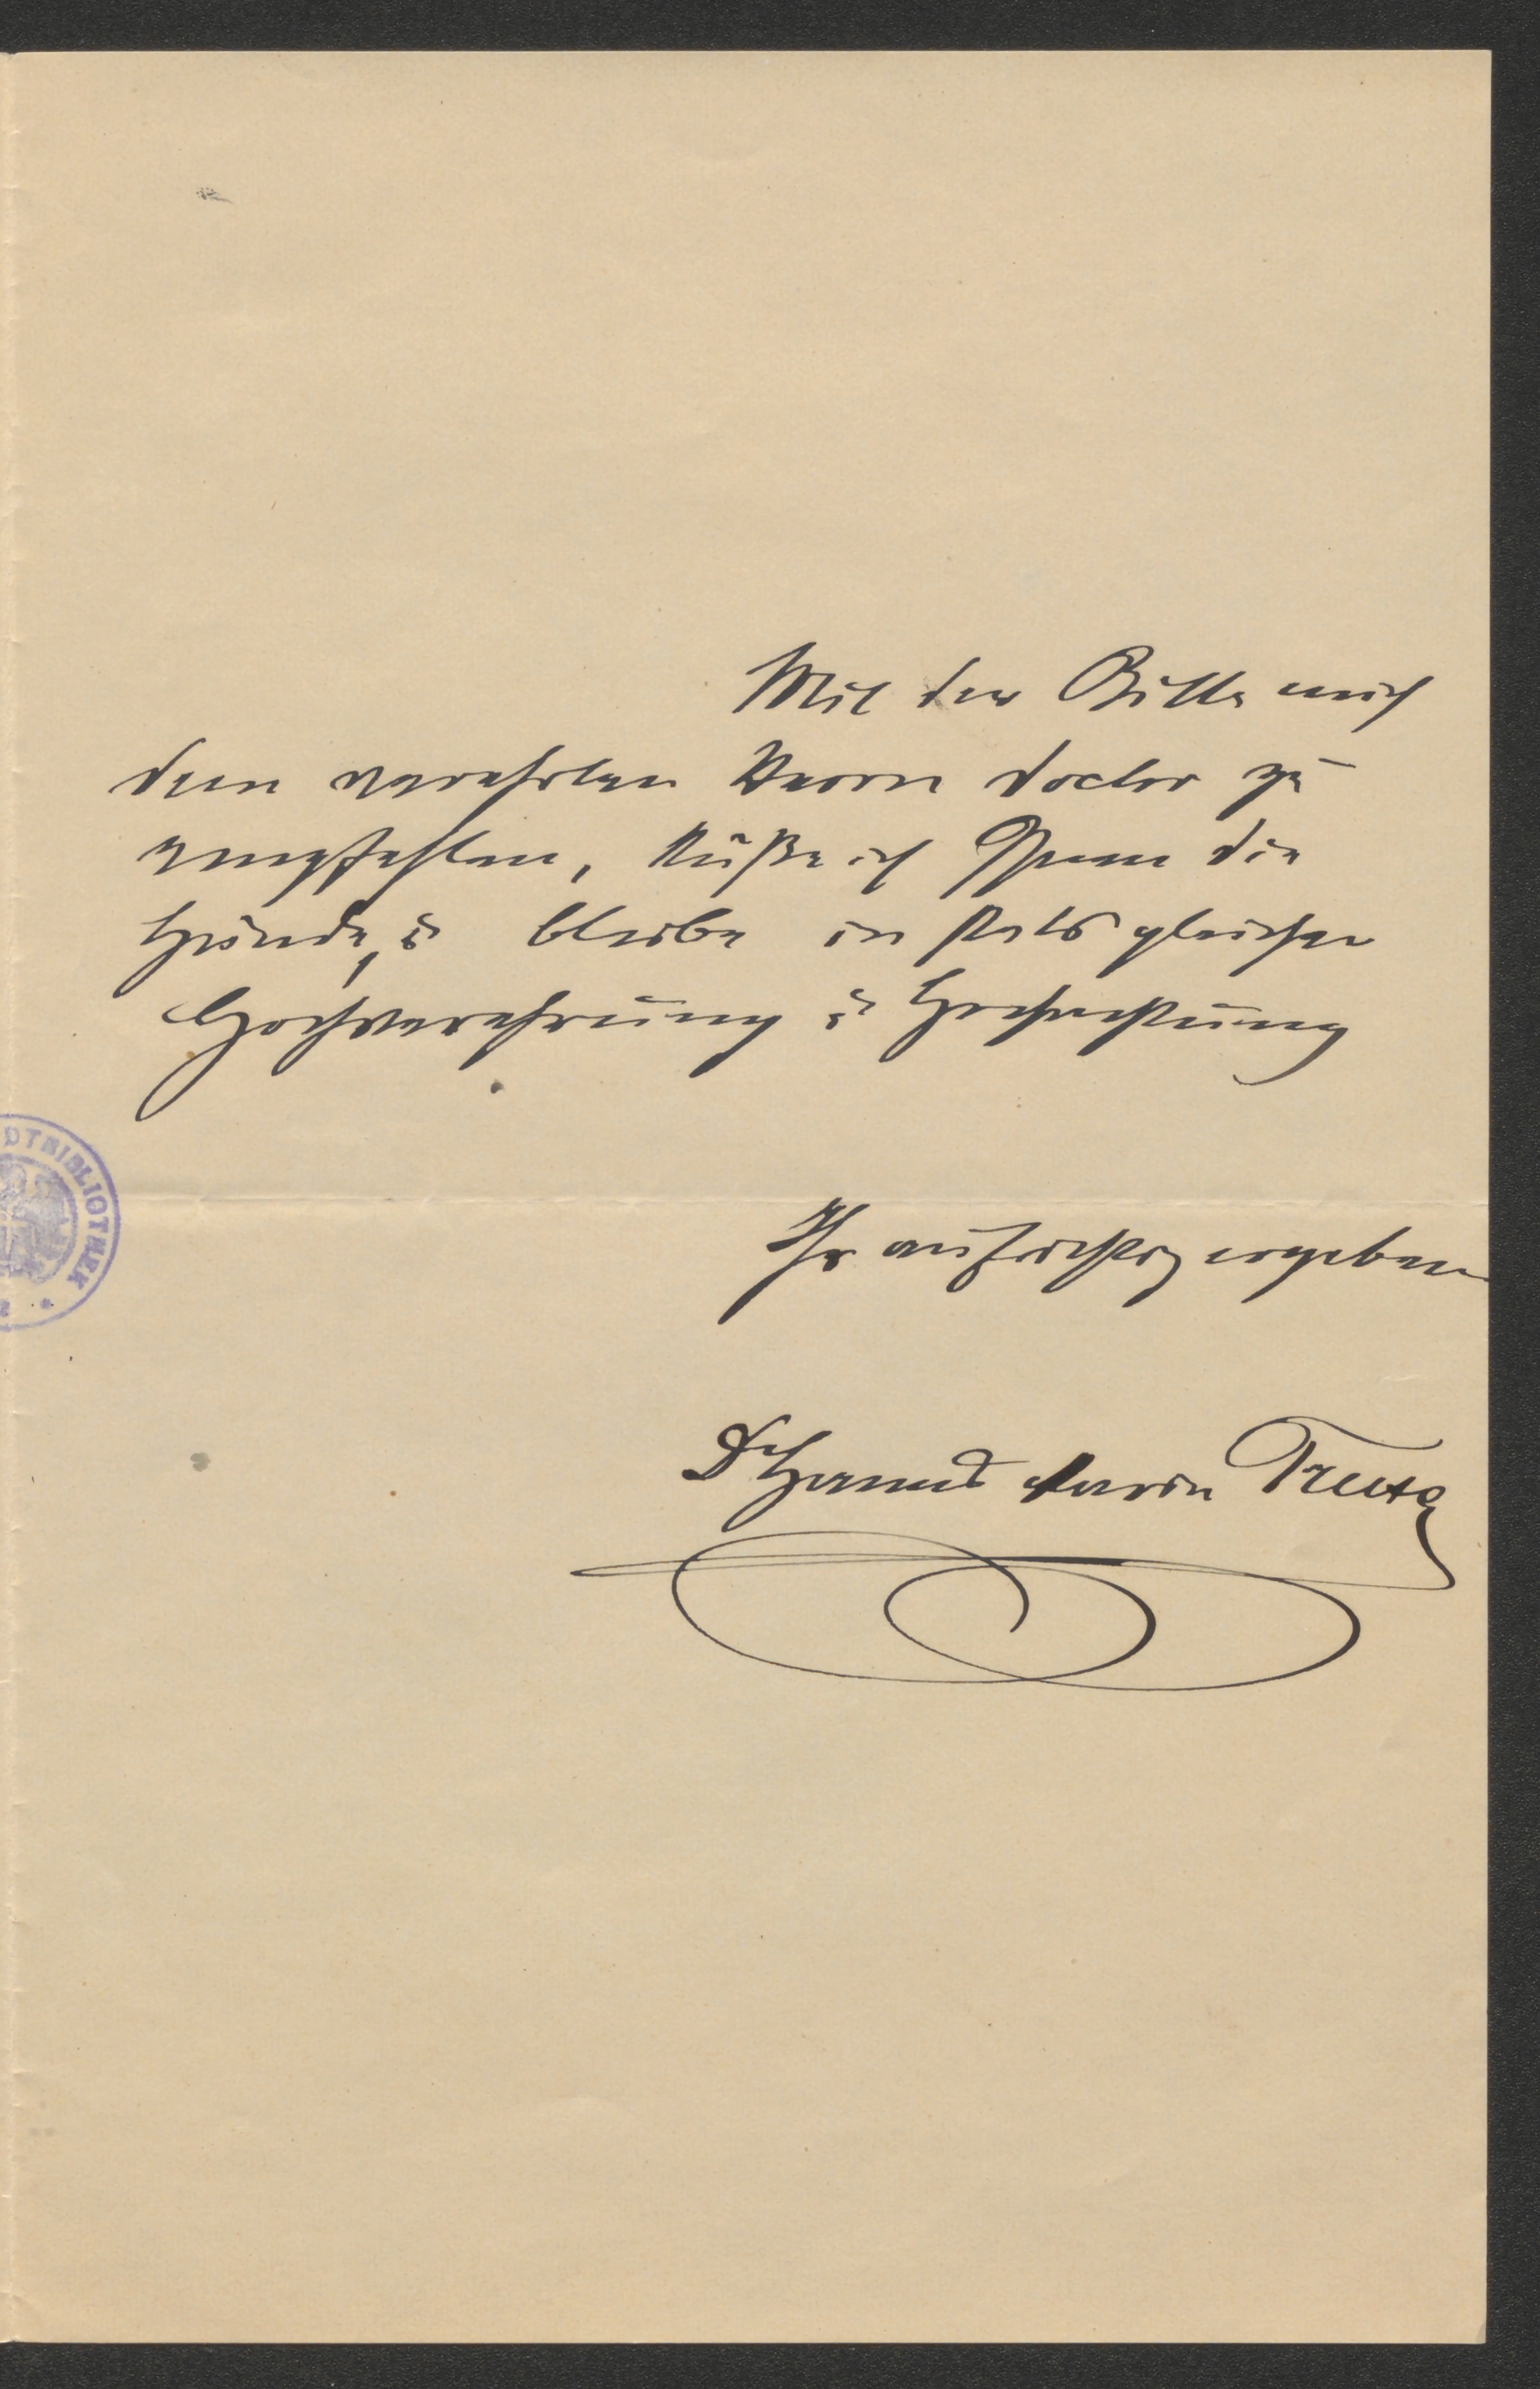 Mit der Bitte mich
dem verehrten Herrn Doctor zu
empfehlen, küße ich Ihnen die
Hände, u bleibe in stets gleicher
Hochverehrung u Hochachtung
Ihr aufrichtig ergebener
Dr Hanns Maria Truxa
DTBIBLIOTHEK